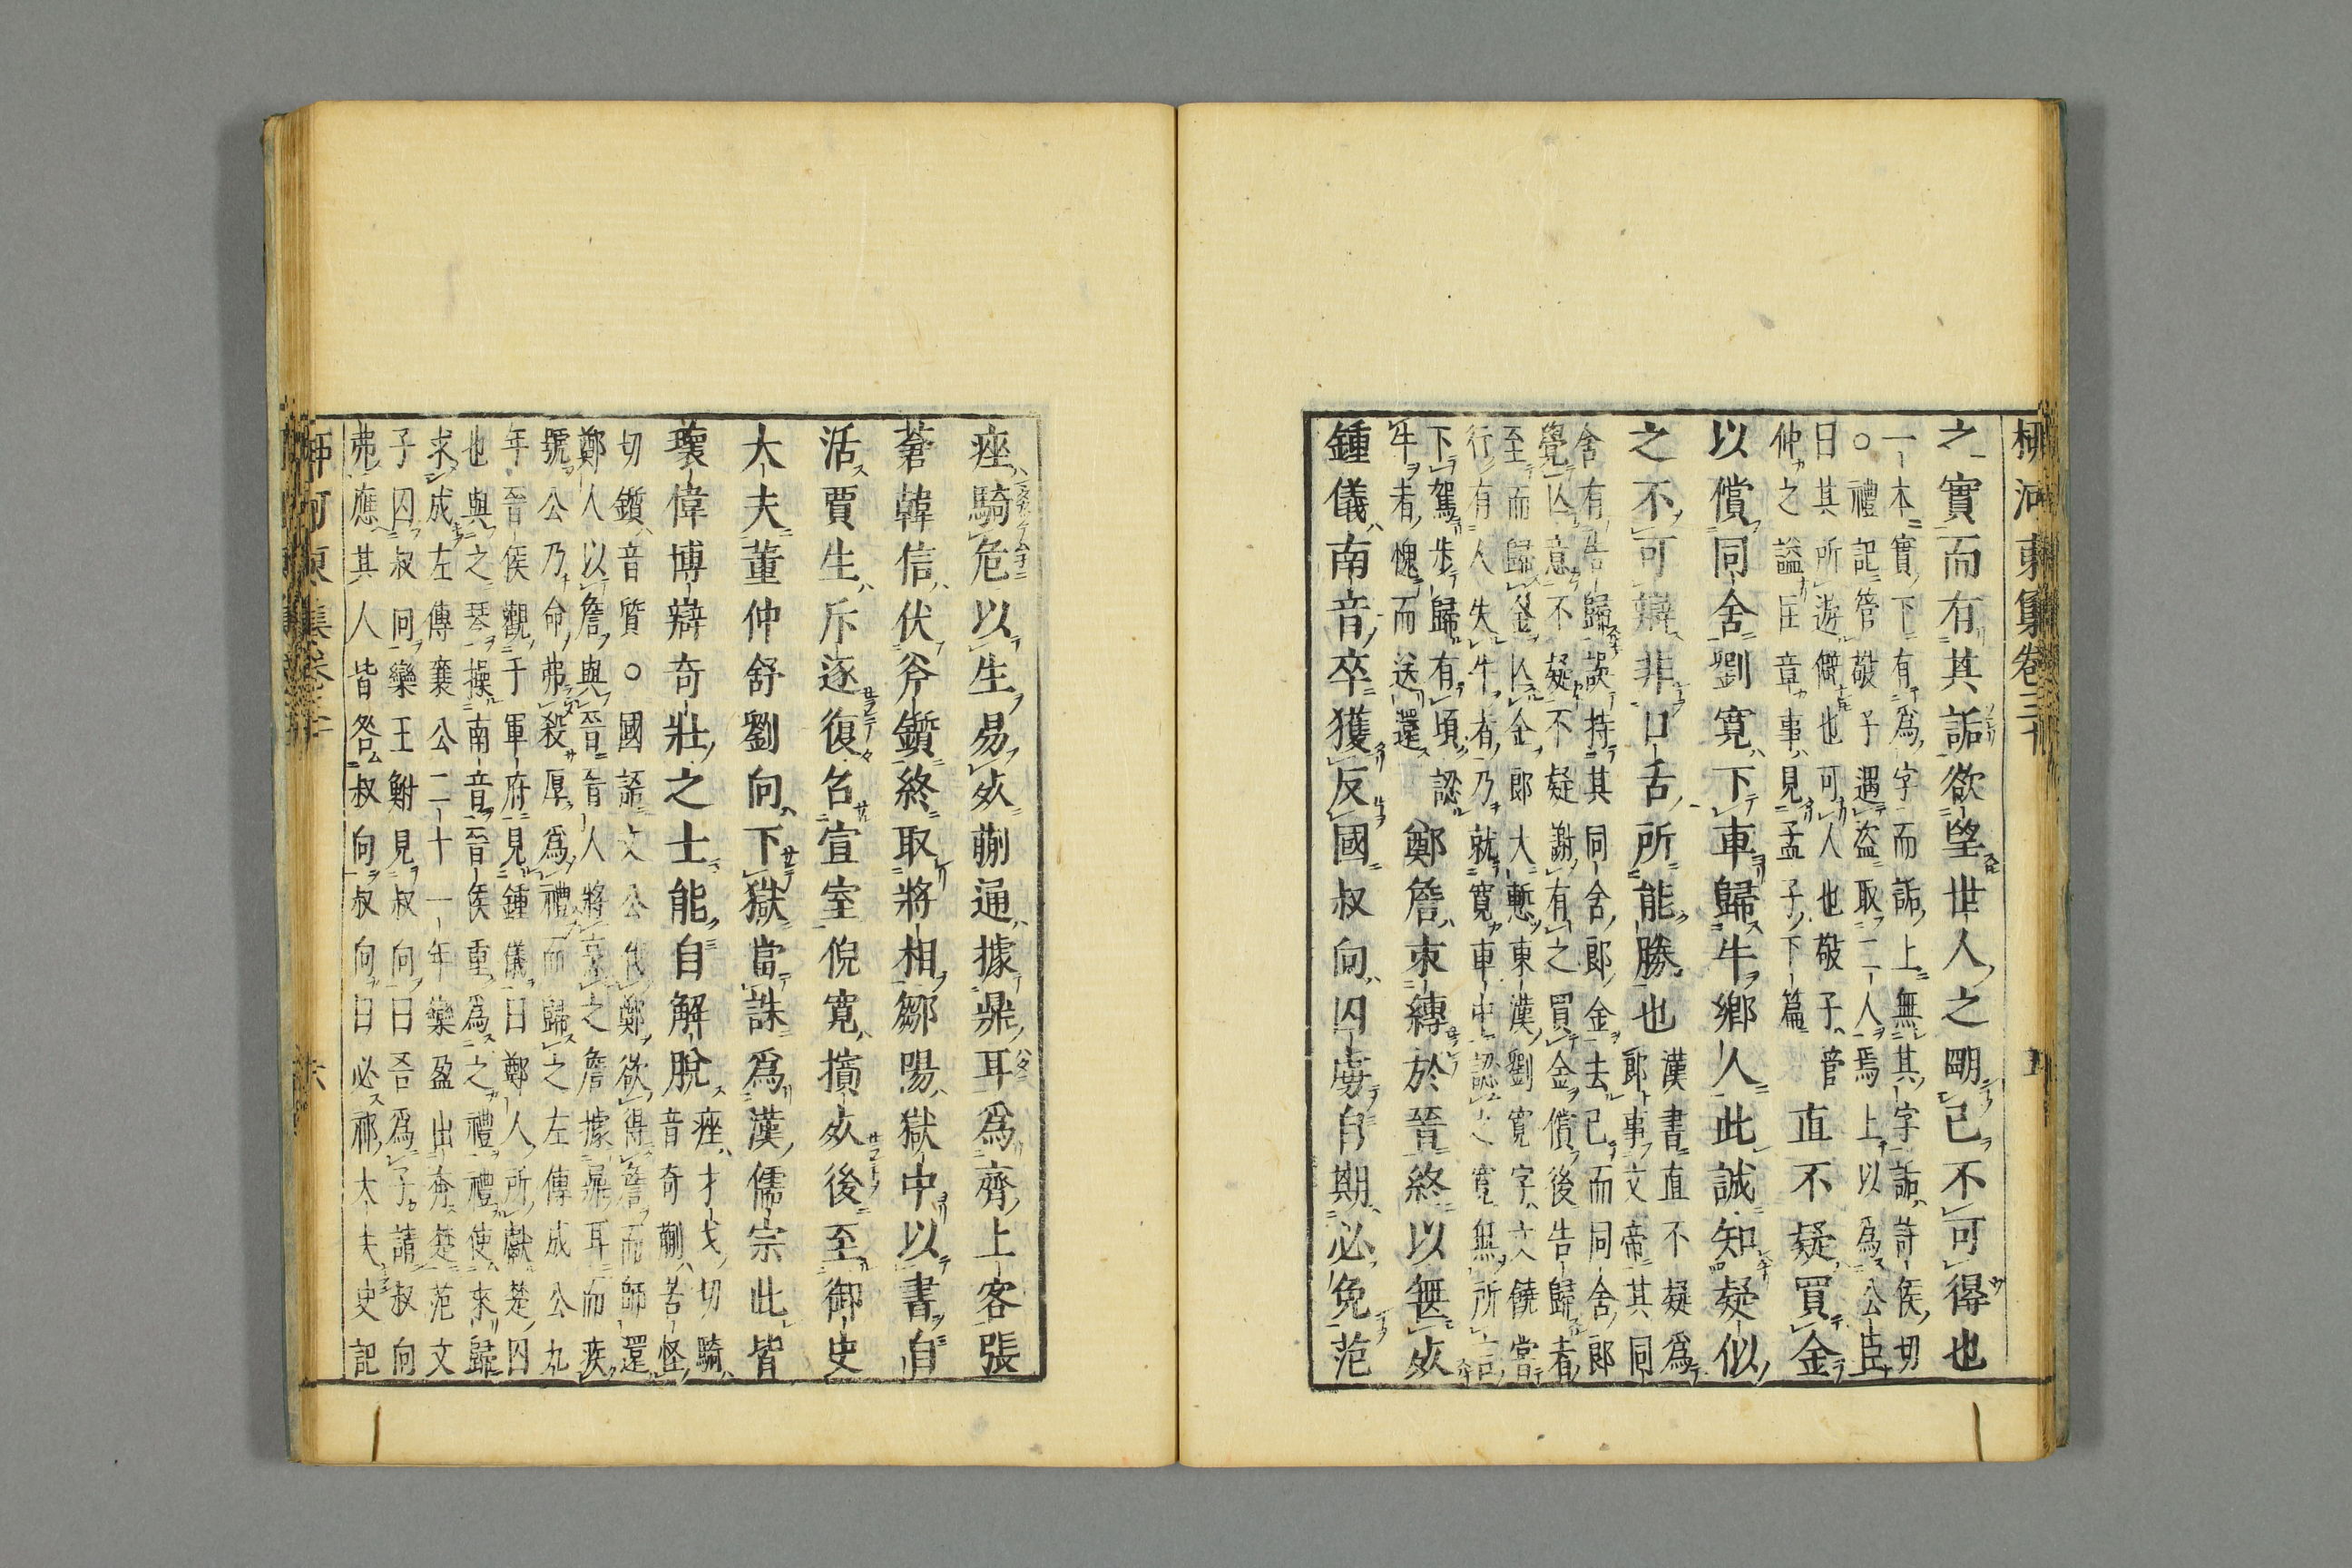 柳河東集卷三十 五
之實而有其詬欲望世人之明己不可得也
一本實下有為字而詬上無其字詬苛侯切
○禮記管敬子遇盜取二人焉上以為公臣
曰其所遊僻也可人也敬子管
仲之謚王章事見孟子下篇
直不疑買金
以償同舍劉寛下車歸牛鄉人此誠知疑似
之不可辯非口舌所能勝也
漢書直不疑為
郎事文帝其同
舍有告歸誤持其同舍郎金去已而同舍郎
覺亡意不疑不疑謝有之買金償後告歸者
至而歸金亡金郎大慙東漢劉寛字文饒當
行有人失牛者乃就寛車中認之寛無所言
下駕步歸有頃認
牛者愧而送還
鄭詹束縛於晉終以無死
鍾儀南音卒獲反國叔向囚虜自期必免范
痤騎危以生易死蒯通據鼎耳為齊上客張
蒼韓信伏斧鑕終取將相鄒陽獄中以書自
活賈生斥逐復召宣室倪寛擯死後至御史
大夫董仲舒劉向下獄當誅為漢儒宗此皆
瓌偉博辯奇壯之士能自解脫
痤才戈切騎
音奇蒯苦怪
切鑕音質○國語文公伐鄭欲得詹而師還
鄭人以詹與晉晉人將烹之詹據鼎耳而疾
號公乃命弗殺厚為禮而歸之左傳成公九
年晉侯觀于軍府見鍾儀曰鄭人所獻楚囚
也與之琴操南音晉侯重為之禮禮使來歸
求成左傳襄公二十一年欒盈出奔楚范文
子囚叔向欒王鮒見叔向曰吾為子請叔向
弗應其人皆咎叔向叔向曰必祁大夫史記
柳河東集卷三十 六